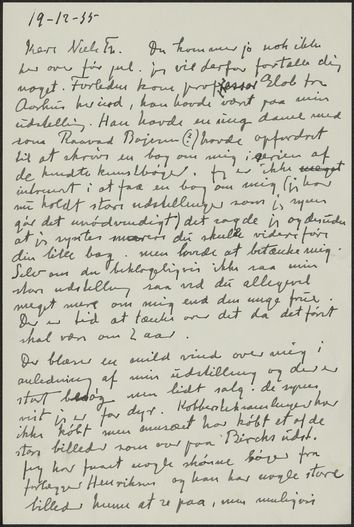 19-12-55
Kære Niels Th. Du kommer jo nok ikke
her over før jul. jeg vil derfor fortælle dig
noget. Forleden kom professor Glob fra
Aarhus herind, han havde været paa min
udstilling. Han havde en ung dame med
som Raavad Bojesen (?) havde opfordret
til at skrive en bog om mig i serien af
de kendte kunstbøger. jeg er ikke meget
interesseret i at faa en bog om mig (jeg har
nu holdt store udstillinger som jeg synes
gør det unødvendigt) det sagde jeg og desuden
at jeg syntes du skulle videre føre
din lille bog. men lovede at betænke mig.
Selv om du beklageligvis ikke saa min
store udstilling saa ved du alligevel
meget mere om mig end den unge frue.
Der er tid at tænke over det da det først
skal være om 2 aar.
Der blæser en mild vind over mig i
anledning af min udstilling og der er
stort besøg men lidt salg. de synes
vist jeg er for dyr. Kobberstiksamlingen har
ikke købt men museet har købt et af de
store billeder som var paa Birchs udst.
Jeg har faaet nogle skønne bøger fra
forlægger Henriksen og han har nogle store
billeder hjemme at se paa, men muligvis